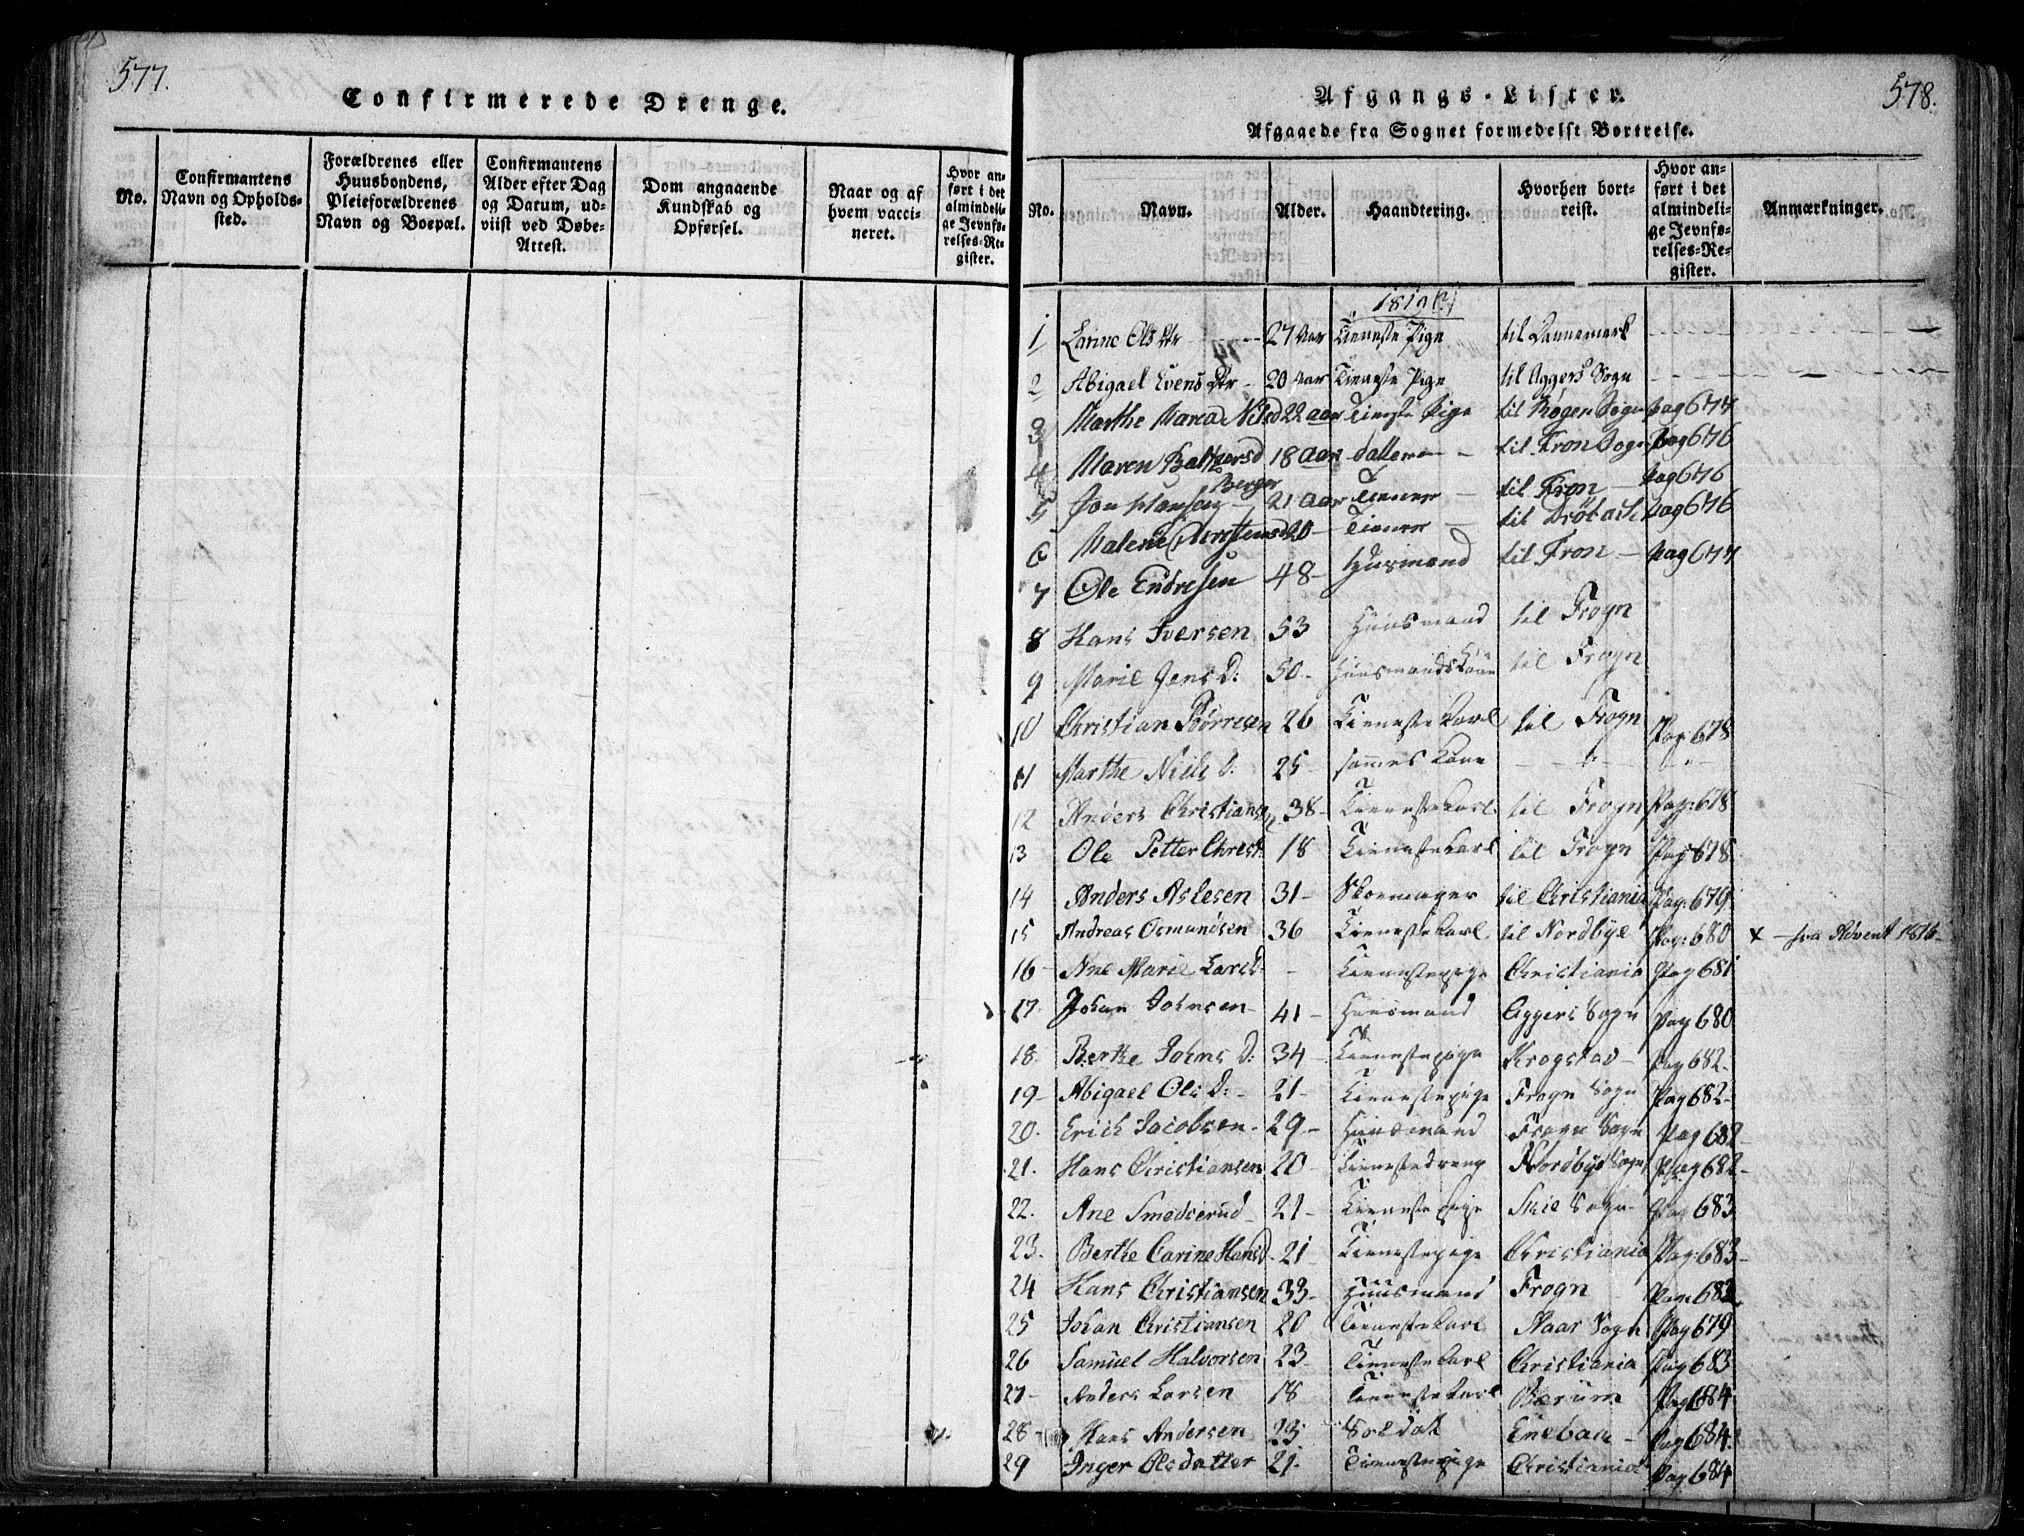 577.
Confirmerede Drenge.
No.
Confirmantens Navn og Opholds-sted.
Forældrenes eller Huusbondens, Pleieforældrenes Navn og Boepæl.
Confirmantens Alder efter Dag og Datum, ud-viist ved Døbe-Attest.
Dom angaaende Kundskab og Opførsel.
Naar og af hvem vacci-neret.
Hvor an-ført i det almindeli-ge Jevnfø-relses-Re-gister.
578.
Afgangs-Lister.
Afgaaede fra Sognet formedelst Bortreise.
No.
Navn.
Alder.
Haandtering.
Hvorhen bort-reist.
Hvor an-ført i det almindeli-ge Jevnfø-relses-Re-gister.
Anmærkninger.
1 Larine Ols Dtr 27 Aar Tieneste Pige til Dannemark
2 Abigael Evens Dtr 20 Aar Tieneste Pige til Aggers Sogn
3 Marthe Maria Nilsd 22 aar Tieneste Pige til Sogn pag 677
4 Maren 18 aar til Fron Sogn pag 676
5 Jon Hansen Berger 21 Aar Tiener til Fron pag 676
6 Malene 20 Tiener til Drøbach pag 676
7 Ole Endresen 48 Husmand til Fron pag 677
8 Hans Iversen 53 Huusmand til Frogn
9 Marie Jens D: 50 Huusmandskone til Frogn
10 Christian Børresen 26 Tienestekarl til Frogn Pag 678
11 Marthe Niels D: 25 sammes Kone - " - "
12 Anders Christiansen 38 Tienestekarl til Frogn Pag: 678
13 Ole Petter Christ: 18 Tienestekarl til Frogn Pag 678
14 Anders Aslesen 31 Skoemager til Christiania Pag: 679
15 Andreas Osmundsen 36 Tienestekarl til Nordbye Pag: 680 x - fra Advent 1816
16 Ane Marie Lars D: - Tienestepige Christiania Pag 681
17 Johan Johnsen 41 Huusmand Aggers Sogn Pag 680
18 Berthe Johns D: 34 Tienestepige Krogstad Pag 682
19 Abigael Ols D: 21 Tienestepige Frogn Sogn Pag 682
20 Erich Jacobsen 29 Huusmand Frogn Sogn Pag 682
21 Hans Christiansen 20 Tienestedreng Nordbye Sogn Pag 682
22 Ane Smedserud 21 Tienestepige Skie Sogn Pag 683
23 Berthe Carine Hansd 21 Tienestepige Christiania Pag: 683
24 Hans Christiansen 33 Huusmand Frogn Pag: 683
25 Johan Christiansen 20 Tienestekarl Aaas Sogn Pag 679
26 Samuel Halvorsen 23 Tienestekarl Christiania Pag 683
27 Anders Larsen 18 Tienestekarl Bærum Pag 684
28 Hans Andersen 23 Soldat Enebak Pag 684
29 Inger Olsdatter 21 Tienestepige Christiania Pag 684